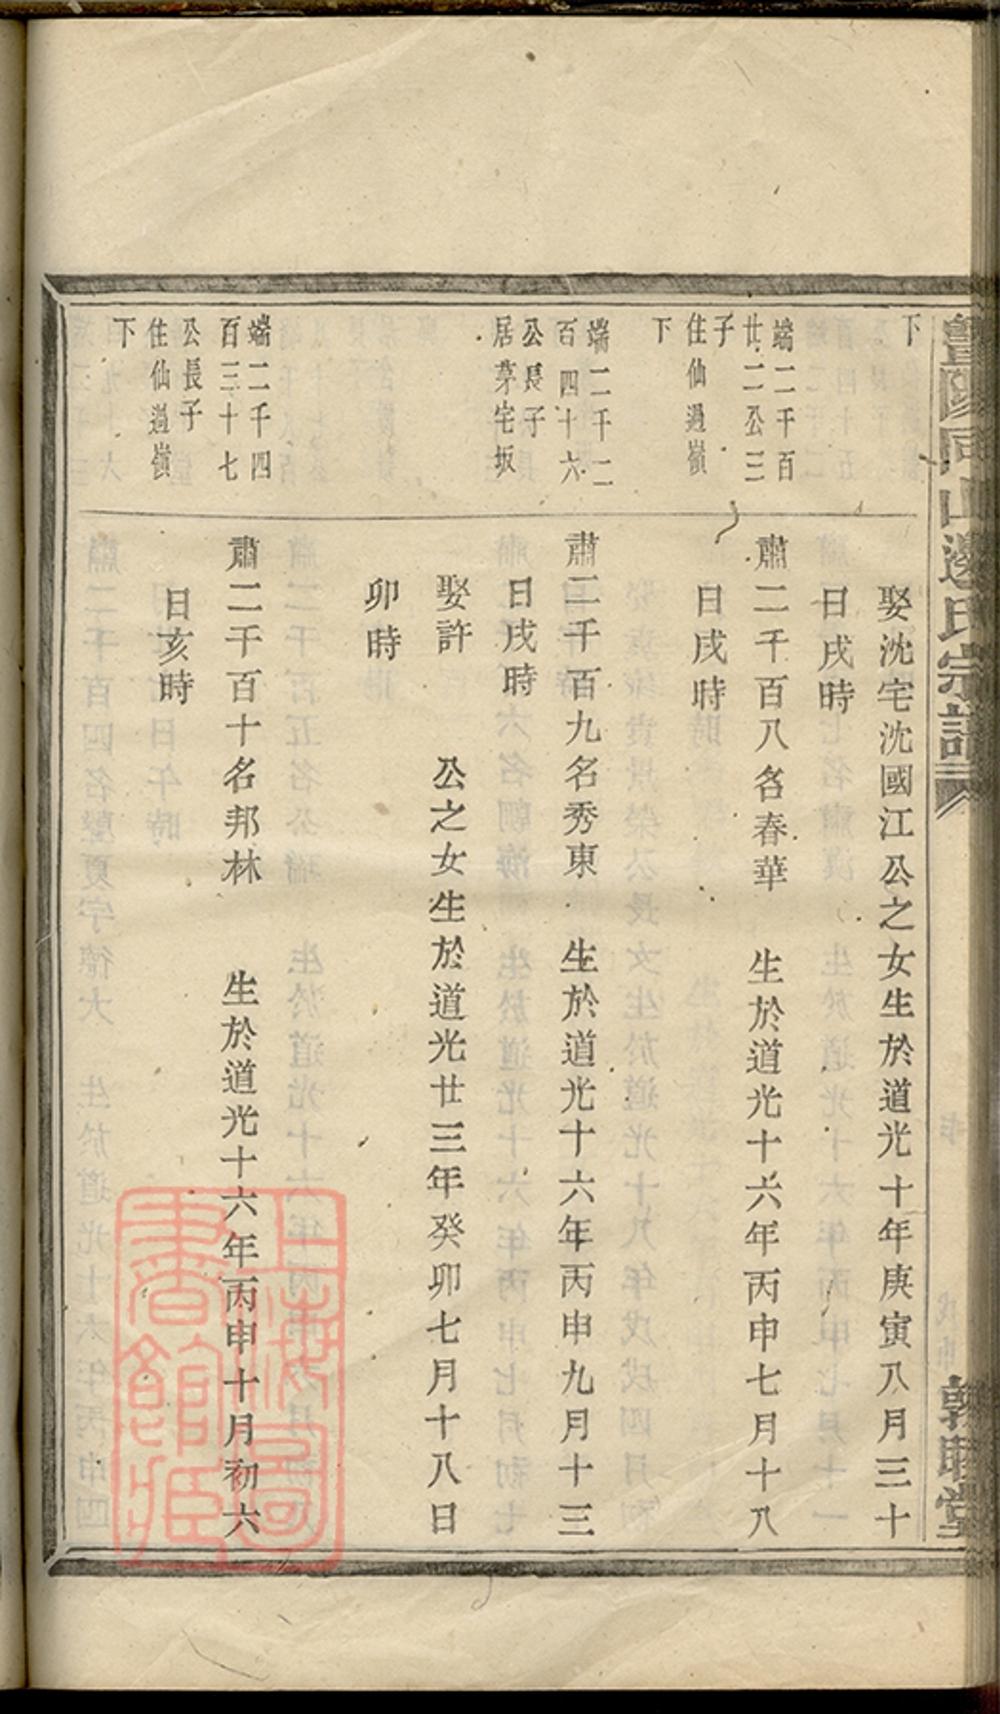 暨陽同山邊氏宗譜
敦睦堂
下
娶沈宅沈國江公之女生於道光十年庚寅八月三十
日戌時
端二千百
廿二公三
子
住仙過嶺
下
肅二千百八名春華 生於道光十六年丙申七月十八
日戌時
端二千二
百四十六
公長子
居茅宅坂
肅二千百九名秀東 生於道光十六年丙申九月十三
日戌時
娶許 公之女生於道光廿三年癸卯七月十八日
卯時
端二千四
百三十七
公長子
住仙過嶺
下
肅二千百十名邦林 生於道光十六年丙申十月初六
日亥時
上海圖
書館藏